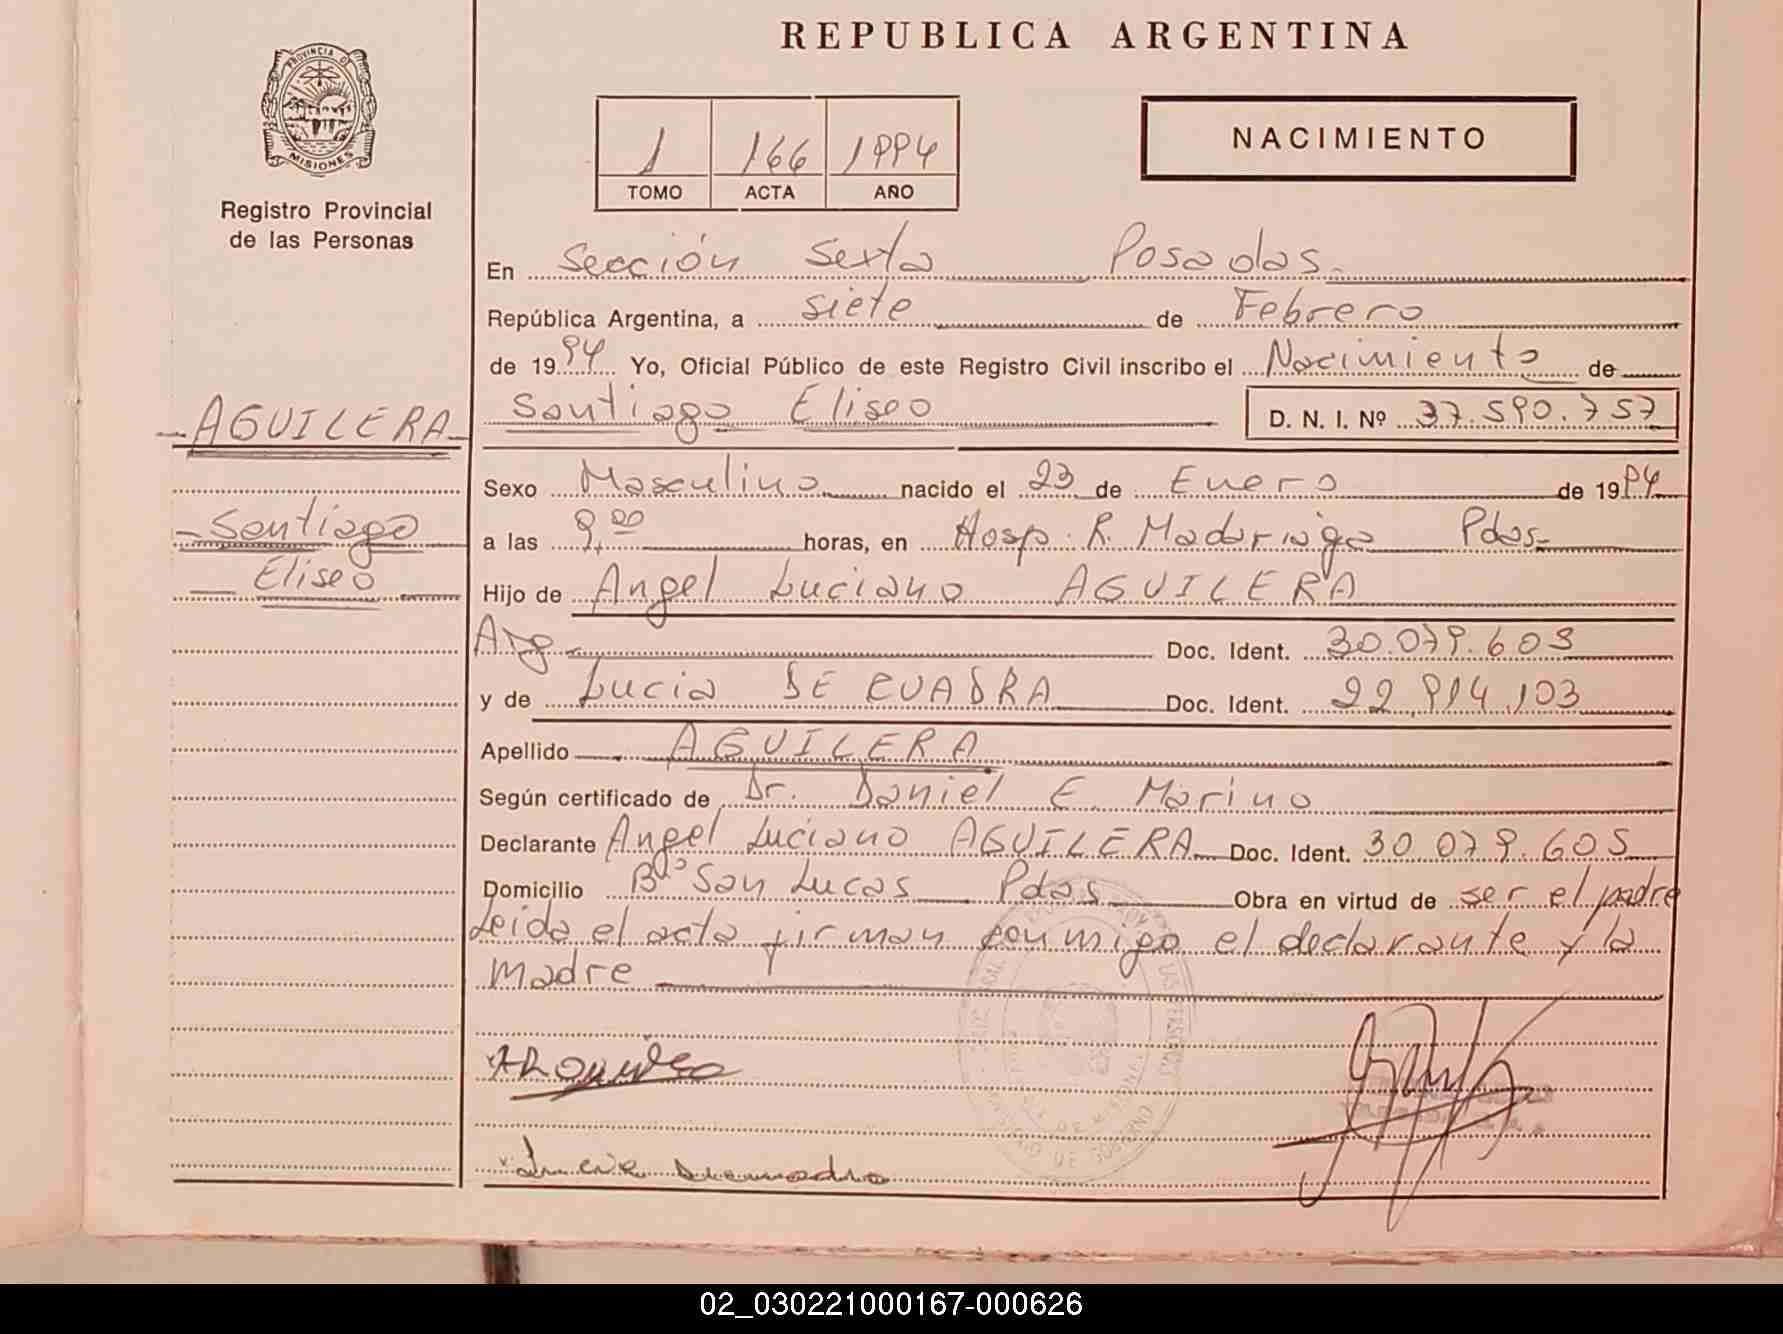 REPUBLICA ARGENTINA
PROVINCIA DE
MISIONES
Registro Provincial
de las Personas
1 166 1994
TOMO ACTA AÑO
NACIMIENTO
En Sección Sexta Posadas
República Argentina, a siete de Febrero
de 1994 Yo, Oficial Público de este Registro Civil inscribo el Nacimiento de
AGUILERA
Santiago Eliseo D. N. I. Nº 37.590.757
Sexo Masculino nacido el 23 de Enero de 1994
Santiago
a las 9,00 horas, en Hosp. R. Madariaga Pdas
Eliseo
Hijo de Angel Luciano AGUILERA
Arg Doc. Ident. 30.079.605
y de Lucia DE CUADRA Doc. Ident. 22.914.103
Apellido AGUILERA
Según certificado de Dr. Daniel E. Marino
Declarante Angel Luciano AGUILERA Doc. Ident. 30.079.605
Domicilio Bº San Lucas Pdas Obra en virtud de ser el padre
Leida el acta firman conmigo el declarante y la
Madre
02_030221000167-000626